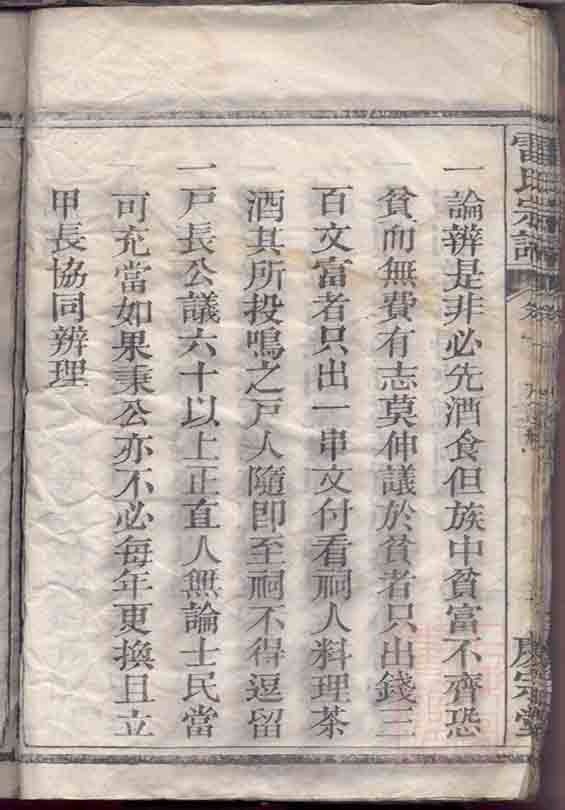 雷氏宗譜
一論辨是非必先酒食但族中貧富不齊恐
貧而無費有志莫伸議於貧者只出錢三
百文富者只出一串文付看祠人料理茶
酒其所投鳴之戸人隨即至祠不得逗留
一戸長公議六十以上正直人無論士民當
可充當如果秉公亦不必每年更換且立
甲長協同辨理
宗堂